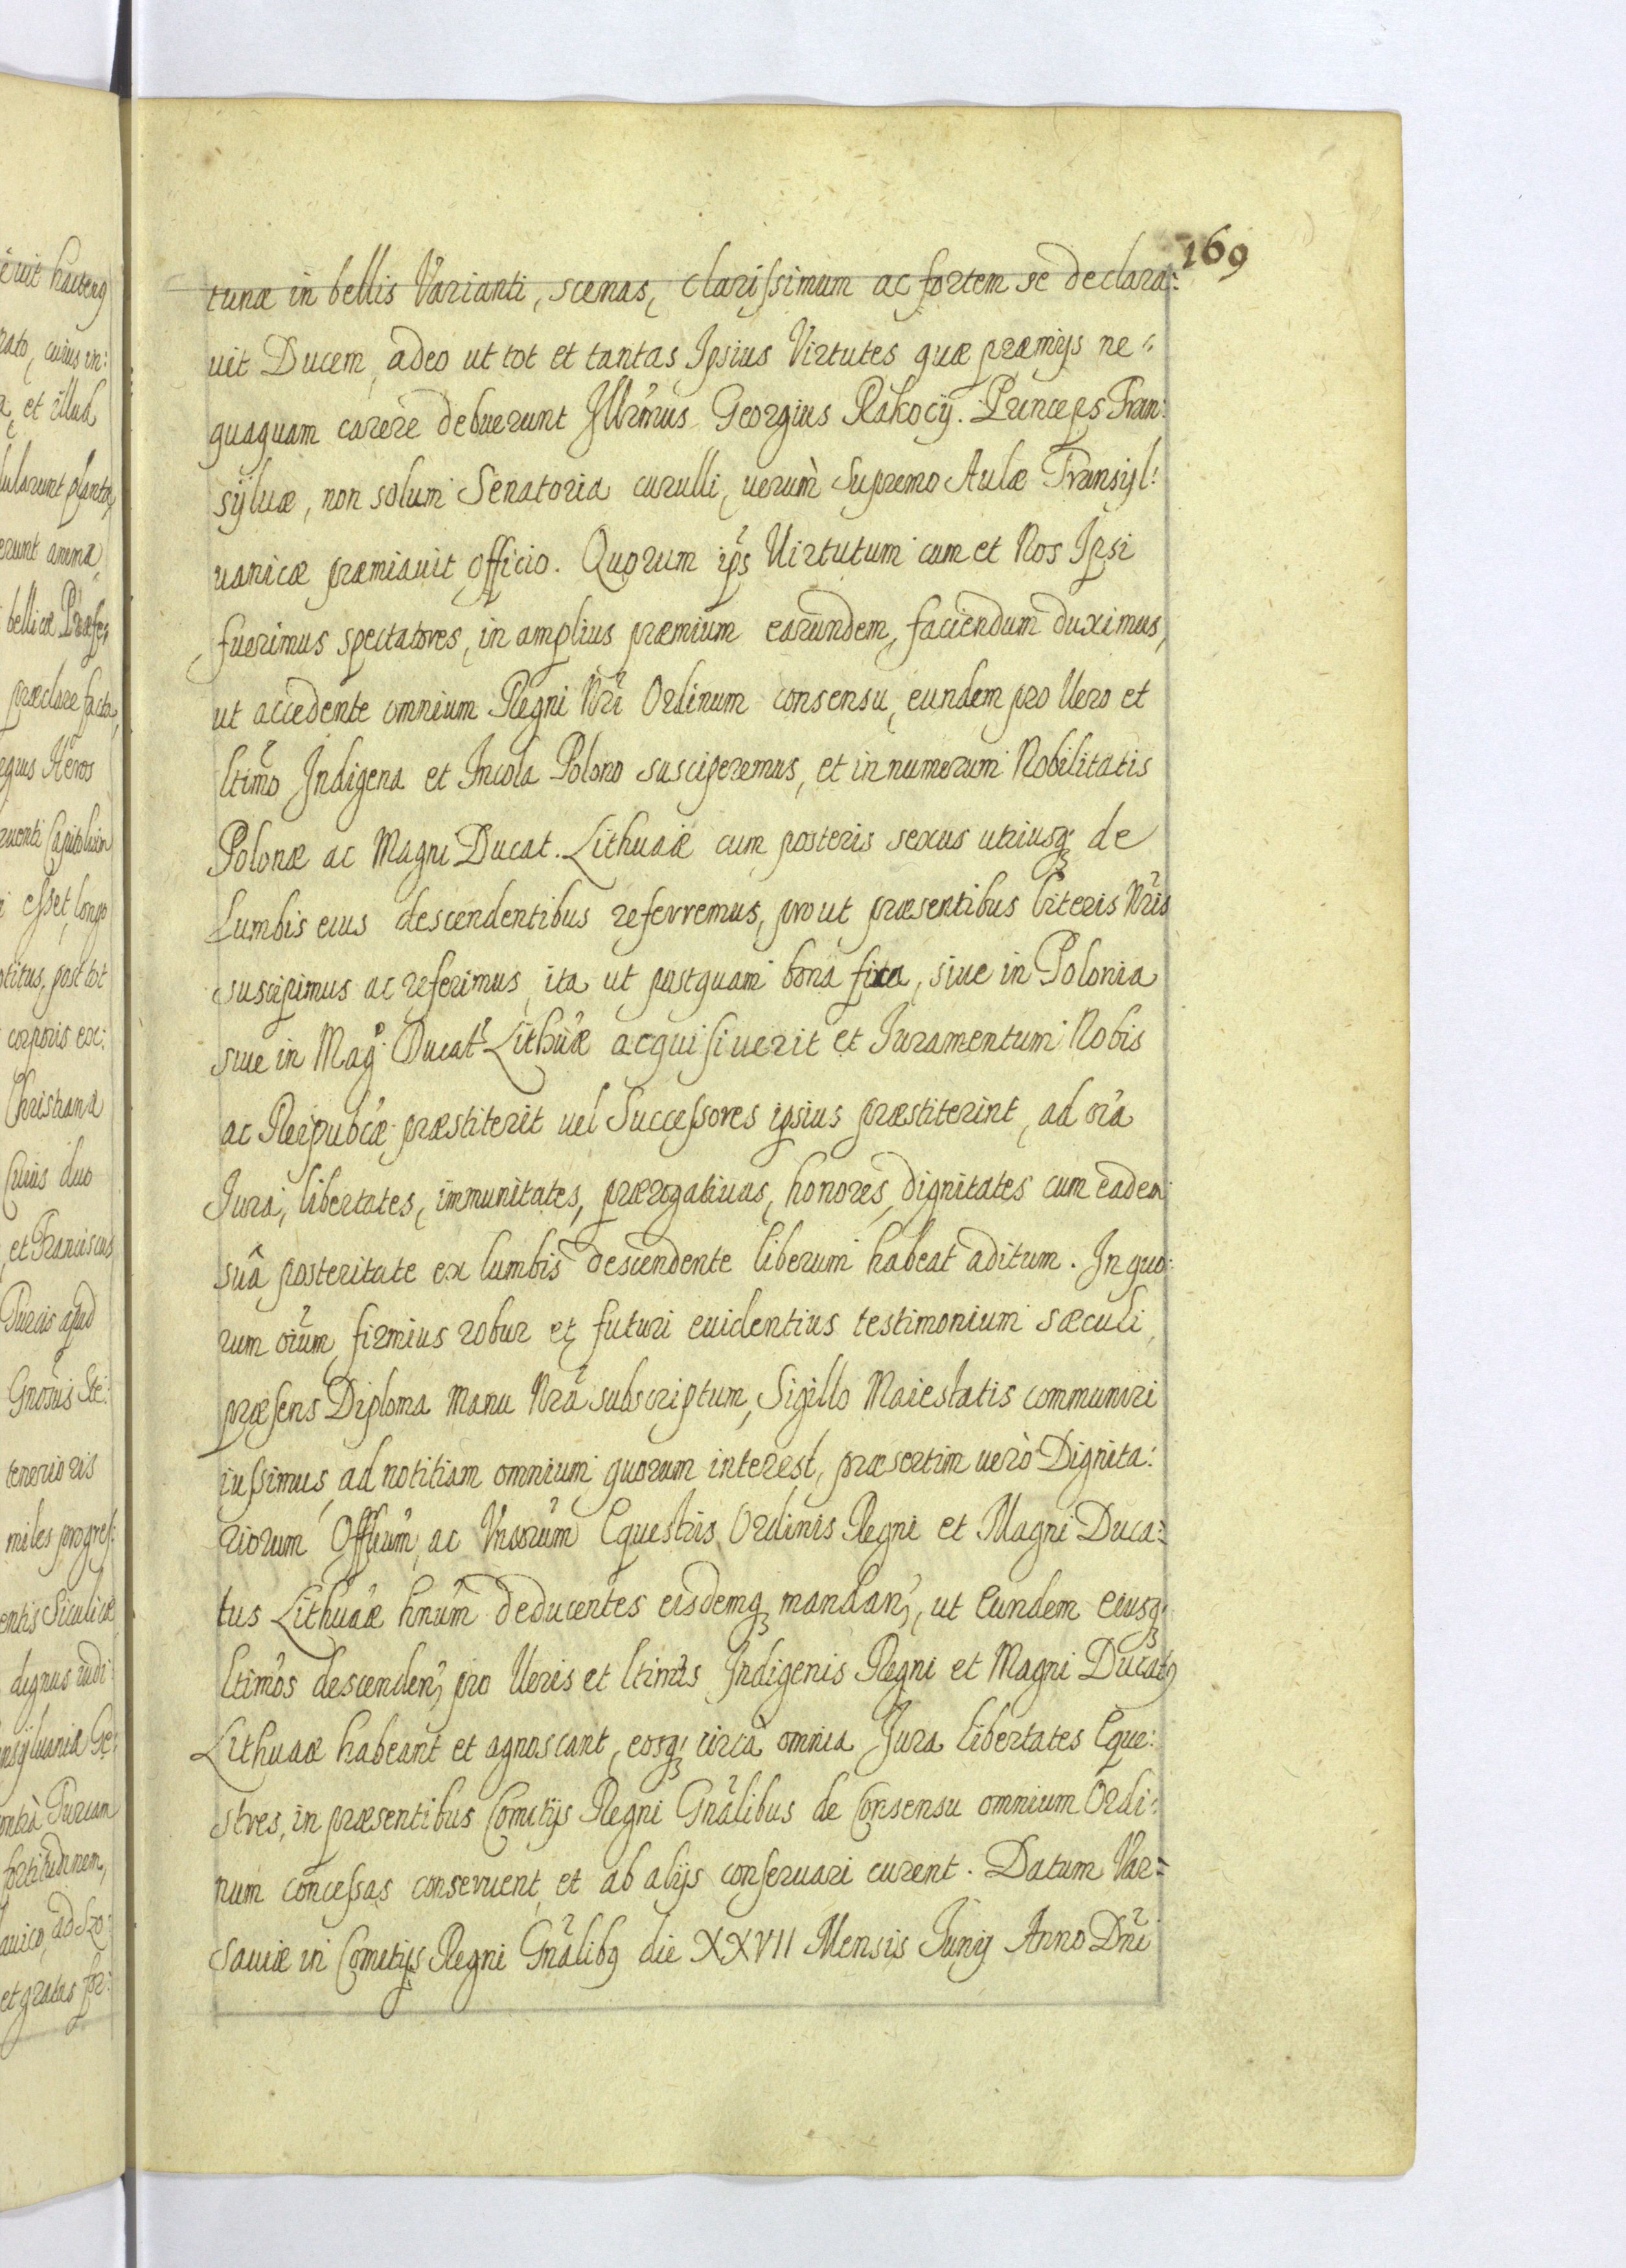 169
tunæ in bellis Varianti, scenas, clarissimum ac fortem se declara:
uit Ducem, adeo ut tot et tantas Ipsius Virtutes quæ præmijs ne:
quaquam carere debuerunt Illr̃mus Georgius Rakocij. Princeps Tran:
syluæ, non solum Senatoria curulli, uerum̀ Supremo Aulæ Transyl:
uanicæ præmiauit officio. Quorum ip̃s Uirtutum cum et Nos Ipsi
fuerimus spectatores, in amplius præmium earundem, faciendum duximus,
ut accedente omnium Regni Nr̃i Ordinum consensu, eundem pro Uero et
ltim̃o Indigena et Incola Polono susciperemus, et in numerum Nobilitatis
Polonæ ac Magni Ducat. Lithuaiæ cum posteris sexus utriusq; de
Lumbis eius descendentibus referremus, prout præsentibus literis Nr̃is
suscipimus ac referimus, ita ut postquam bona fixa, siue in Polonia
siue in Mag. Ducat̃ Lithũæ acquisiuerit et Juramentum Nobis
ac Reipub̃cæ præstiterit uel Successores ipsius præstiterint, ad oĩa
Jura, libertates, immunitates, prærogatiuas, honores, dignitates cum eadem
suâ posteritate ex lumbis descendente liberum habeat aditum. In quo:
rum oĩum, firmius robur et futuri euidentius testimonium sæculi,
præsens Diploma Manu Nr̃a subscriptum, Sigillo Maiestatis communiri
iussimus, ad notitiam omnium quorum interest, præsertim uerò Dignita:
riorum Offium̃, ac Vnorum̃ Equestris Ordinis Regni et Magni Duca:
tus Lithuãæ hnum̃ deducentes eisdemq; mandan̄, ut Eundem eiusq;
ltim̃os descenden̄, pro Ueris et ltim̃is Indigenis Regni et Magni Ducatꝰ
Lithuaæ habeant et agnoscant, eosq; circa omnia Jura libertates Eque:
stres, in præsentibus Comitijs Regni Gñalibus de Consensu omnium Ordi:
num concessas conseruent, et ab alijs conseruari curent. Datum Var=
sauiæ in Comitijs Regni Gñalibꝰ die XXVII Mensis Junij Anno Dñi